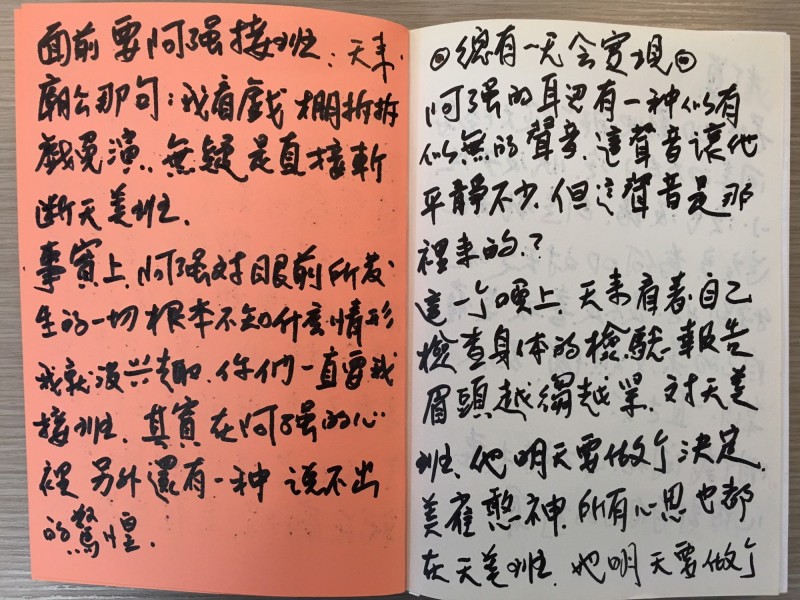 面前要阿强接班：天來.
廟公那句：我看戲棚拆拆
戲免演. 無疑是直接斬
断天美班.
事實上. 阿强对眼前所发
生的一切根本不知什麽情形
我就没兴趣. 你們一直要我
接班. 其實在阿强的心
裡 另外還有一种 说不出
的驚惶.
◎總有一天会实現◎
阿强的耳边有一种似有
似無的聲音. 這聲音讓他
平靜不少. 但这聲音是那
裡来的.?
這一个晚上. 天来看着自己
檢查身体的檢驗報告
眉頭越縐越深. 对天美
班. 他明天要做个決定.
美雀憨神. 所有心思也都
在天美班. 她明天要做个